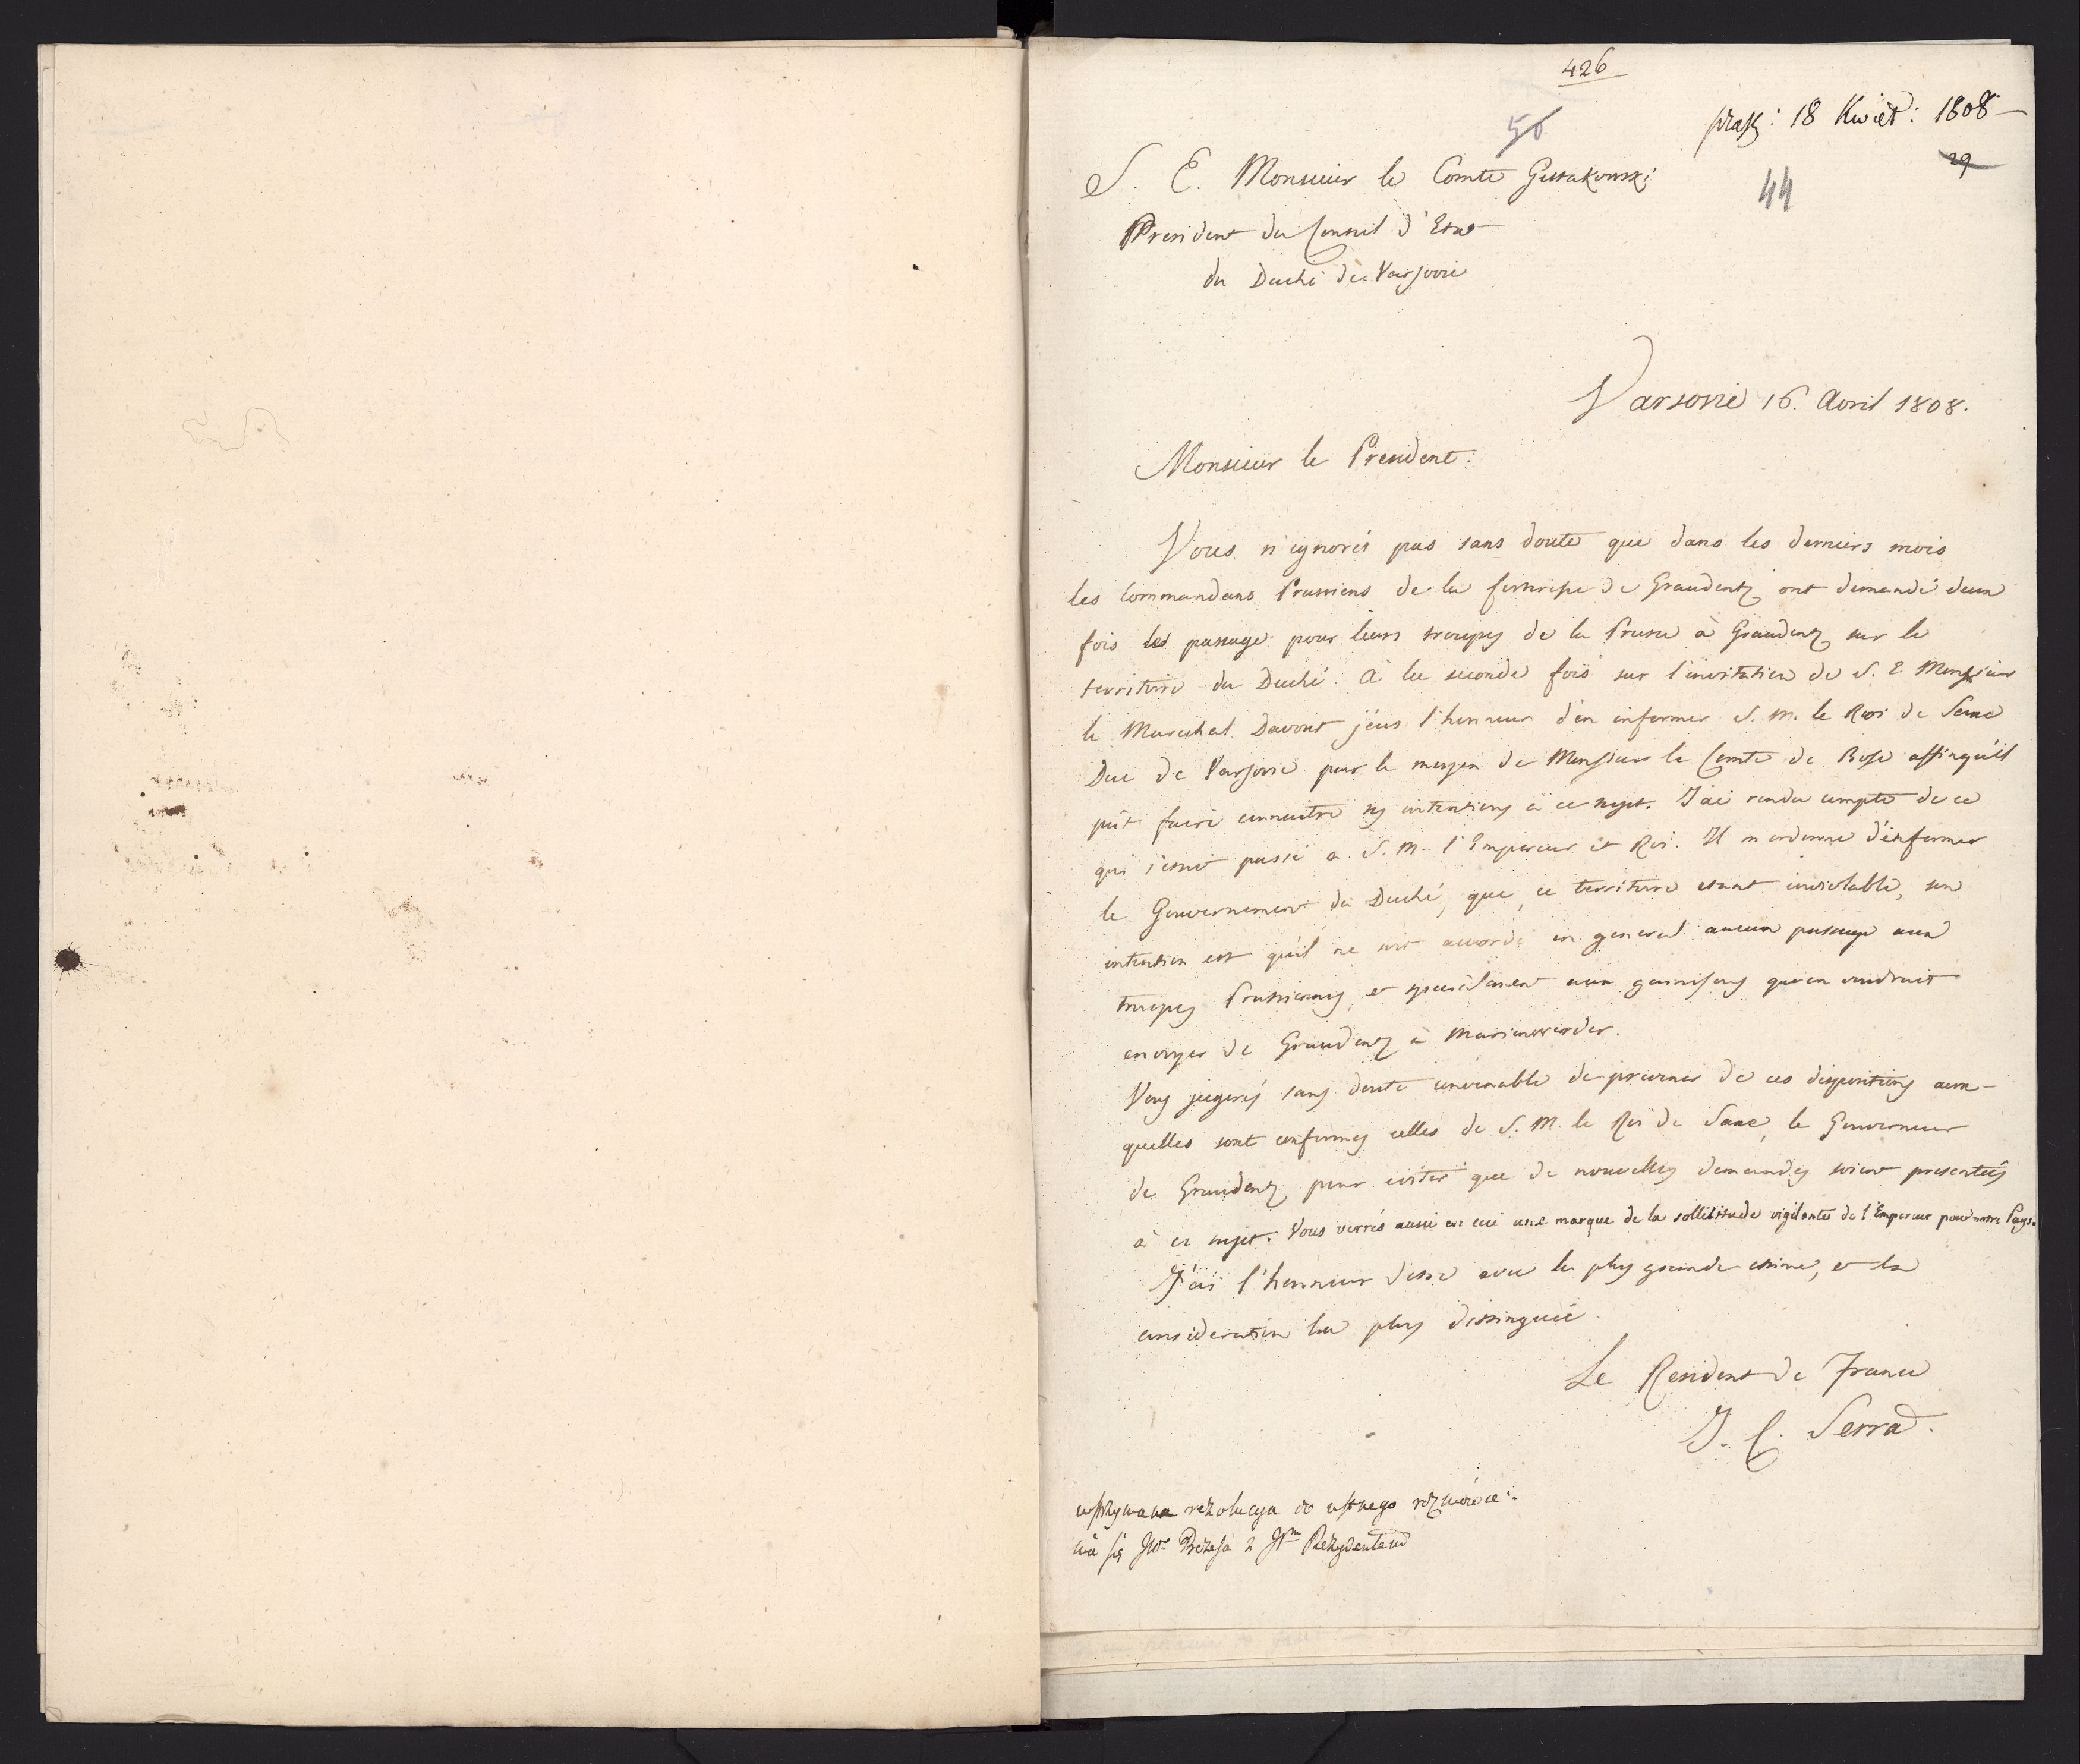 426
56
18 Kwiet: 1808
29
44
S. E. Monsieur le Comte Gutakowski
President du Conseil d'Etat
du Duché de Varsovie
Varsovie 16. Avril 1808.
Monsieur le President:
Vous n'ignorés pas sans doute que dans les derniers mois
les Commandans Prussiens de la forteresse de Graudentz ont demandé deux
fois les passage pour leurs troupes de la Prusse à Graudentz sur le
territoire du Duché. A la seconde fois sur l'invitation de S. E. Monsieur
le Marechal Davout j'eus l'honneur d'en informer S. M. le Roi de Saxe
Duc de Varsovie par le moyen de Monsieur le Comte de Bose affinqu'il
put faire connaitre ses intentions à ce sujet. J'ai rendu compte de ce
qui s'etait passé a S. M. l'Empereur et Roi. Il m'ordonne d'informer
le Gouvernement du Duché, que ce territoire etant inviolable, son
intention est qu'il ne soit accordé en general aucun passage aux
troupes Prussiennes, et specialement aux garnisons qu'on voudrait
envoyer de Graudentz à Marienwerder.
Vous jugerés sans doute convenable de prevenir de ces dispositions aux-
quelles sont conformes celles de S. M. le Roi de Saxe, le Gouverneur
de Graudentz pour eviter que de nouvelles demandes soient presentées
à ce sujet. Vous verrés aussi en ceci une marque de la sollicitude vigilante de l'Empereur pour votre Pays.
J'ai l'honneur d'etre avec la plus grande estime, et la
consideration la plus distinguée.
Le Resident de France
J. C. Serra.
wstrzymana rezolucya do ustnego rozmówie-
nia się JWo Prezesa z JWm Rezydentem